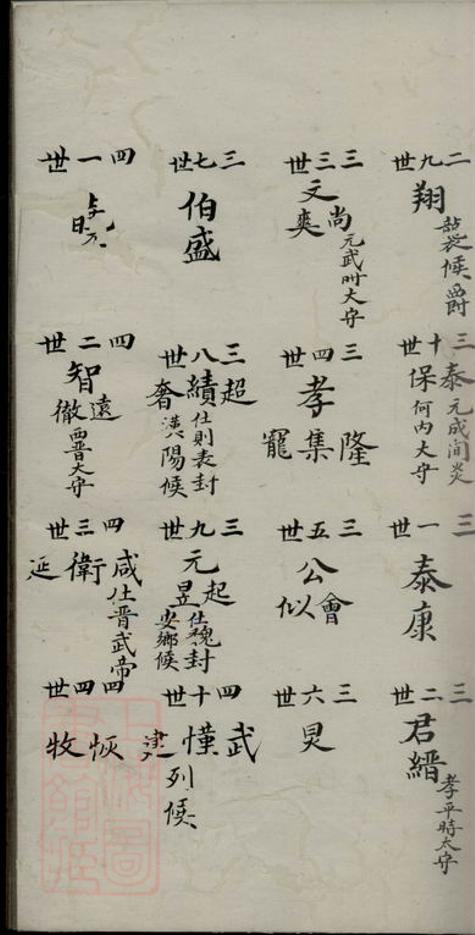 二九世
翔
襲候爵
三十世
泰
保
元成
何内大守
三一世
泰康
三二世
君縉
孝平時太守
三三世
尚
文爽
元武時大守
三四世
孝
隆集寵
三五世
公
會似
三六世
炅
三七世
伯盛
三八世
超績奢
仕則表封
潢陽候
三九世
元
起昱
仕魏封
安鄉候
四十世
武慬建
列候
四一世
四二世
智
遠徹
西晋大守
四三世
咸衛延
仕晋武帝
四四世
恢牧
上海圖書館藏